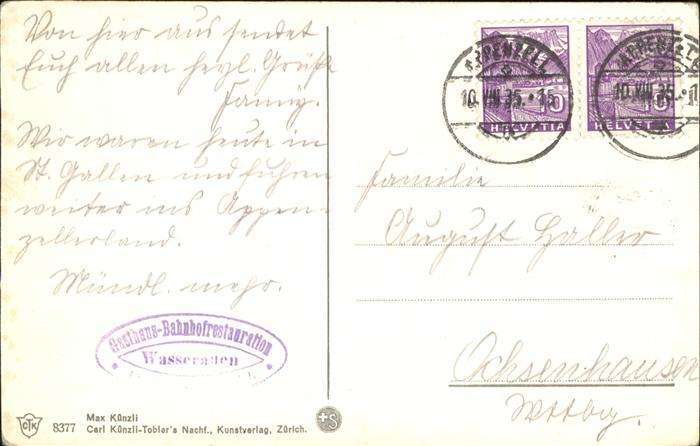 Von hier aus sendet
Euch allen herzl. Grüße
Fanny.
Wir waren heute in
St. Gallen und fuhren
weiter ins Appen-
zellerland.
Mündl. mehr.
Gasthaus-Bahnhofrestauration
Wasserauen
CTK
8377
Max Künzli
Carl Künzli-Tobler's Nachf., Kunstverlag, Zürich.
+S
APPENZELL
10.VIII.35.·15
10
HELVETIA
APPENZELL
10.VIII.35.·1
10
HELVETIA
Familie
August Haller
Ochsenhausen
Wttbg.